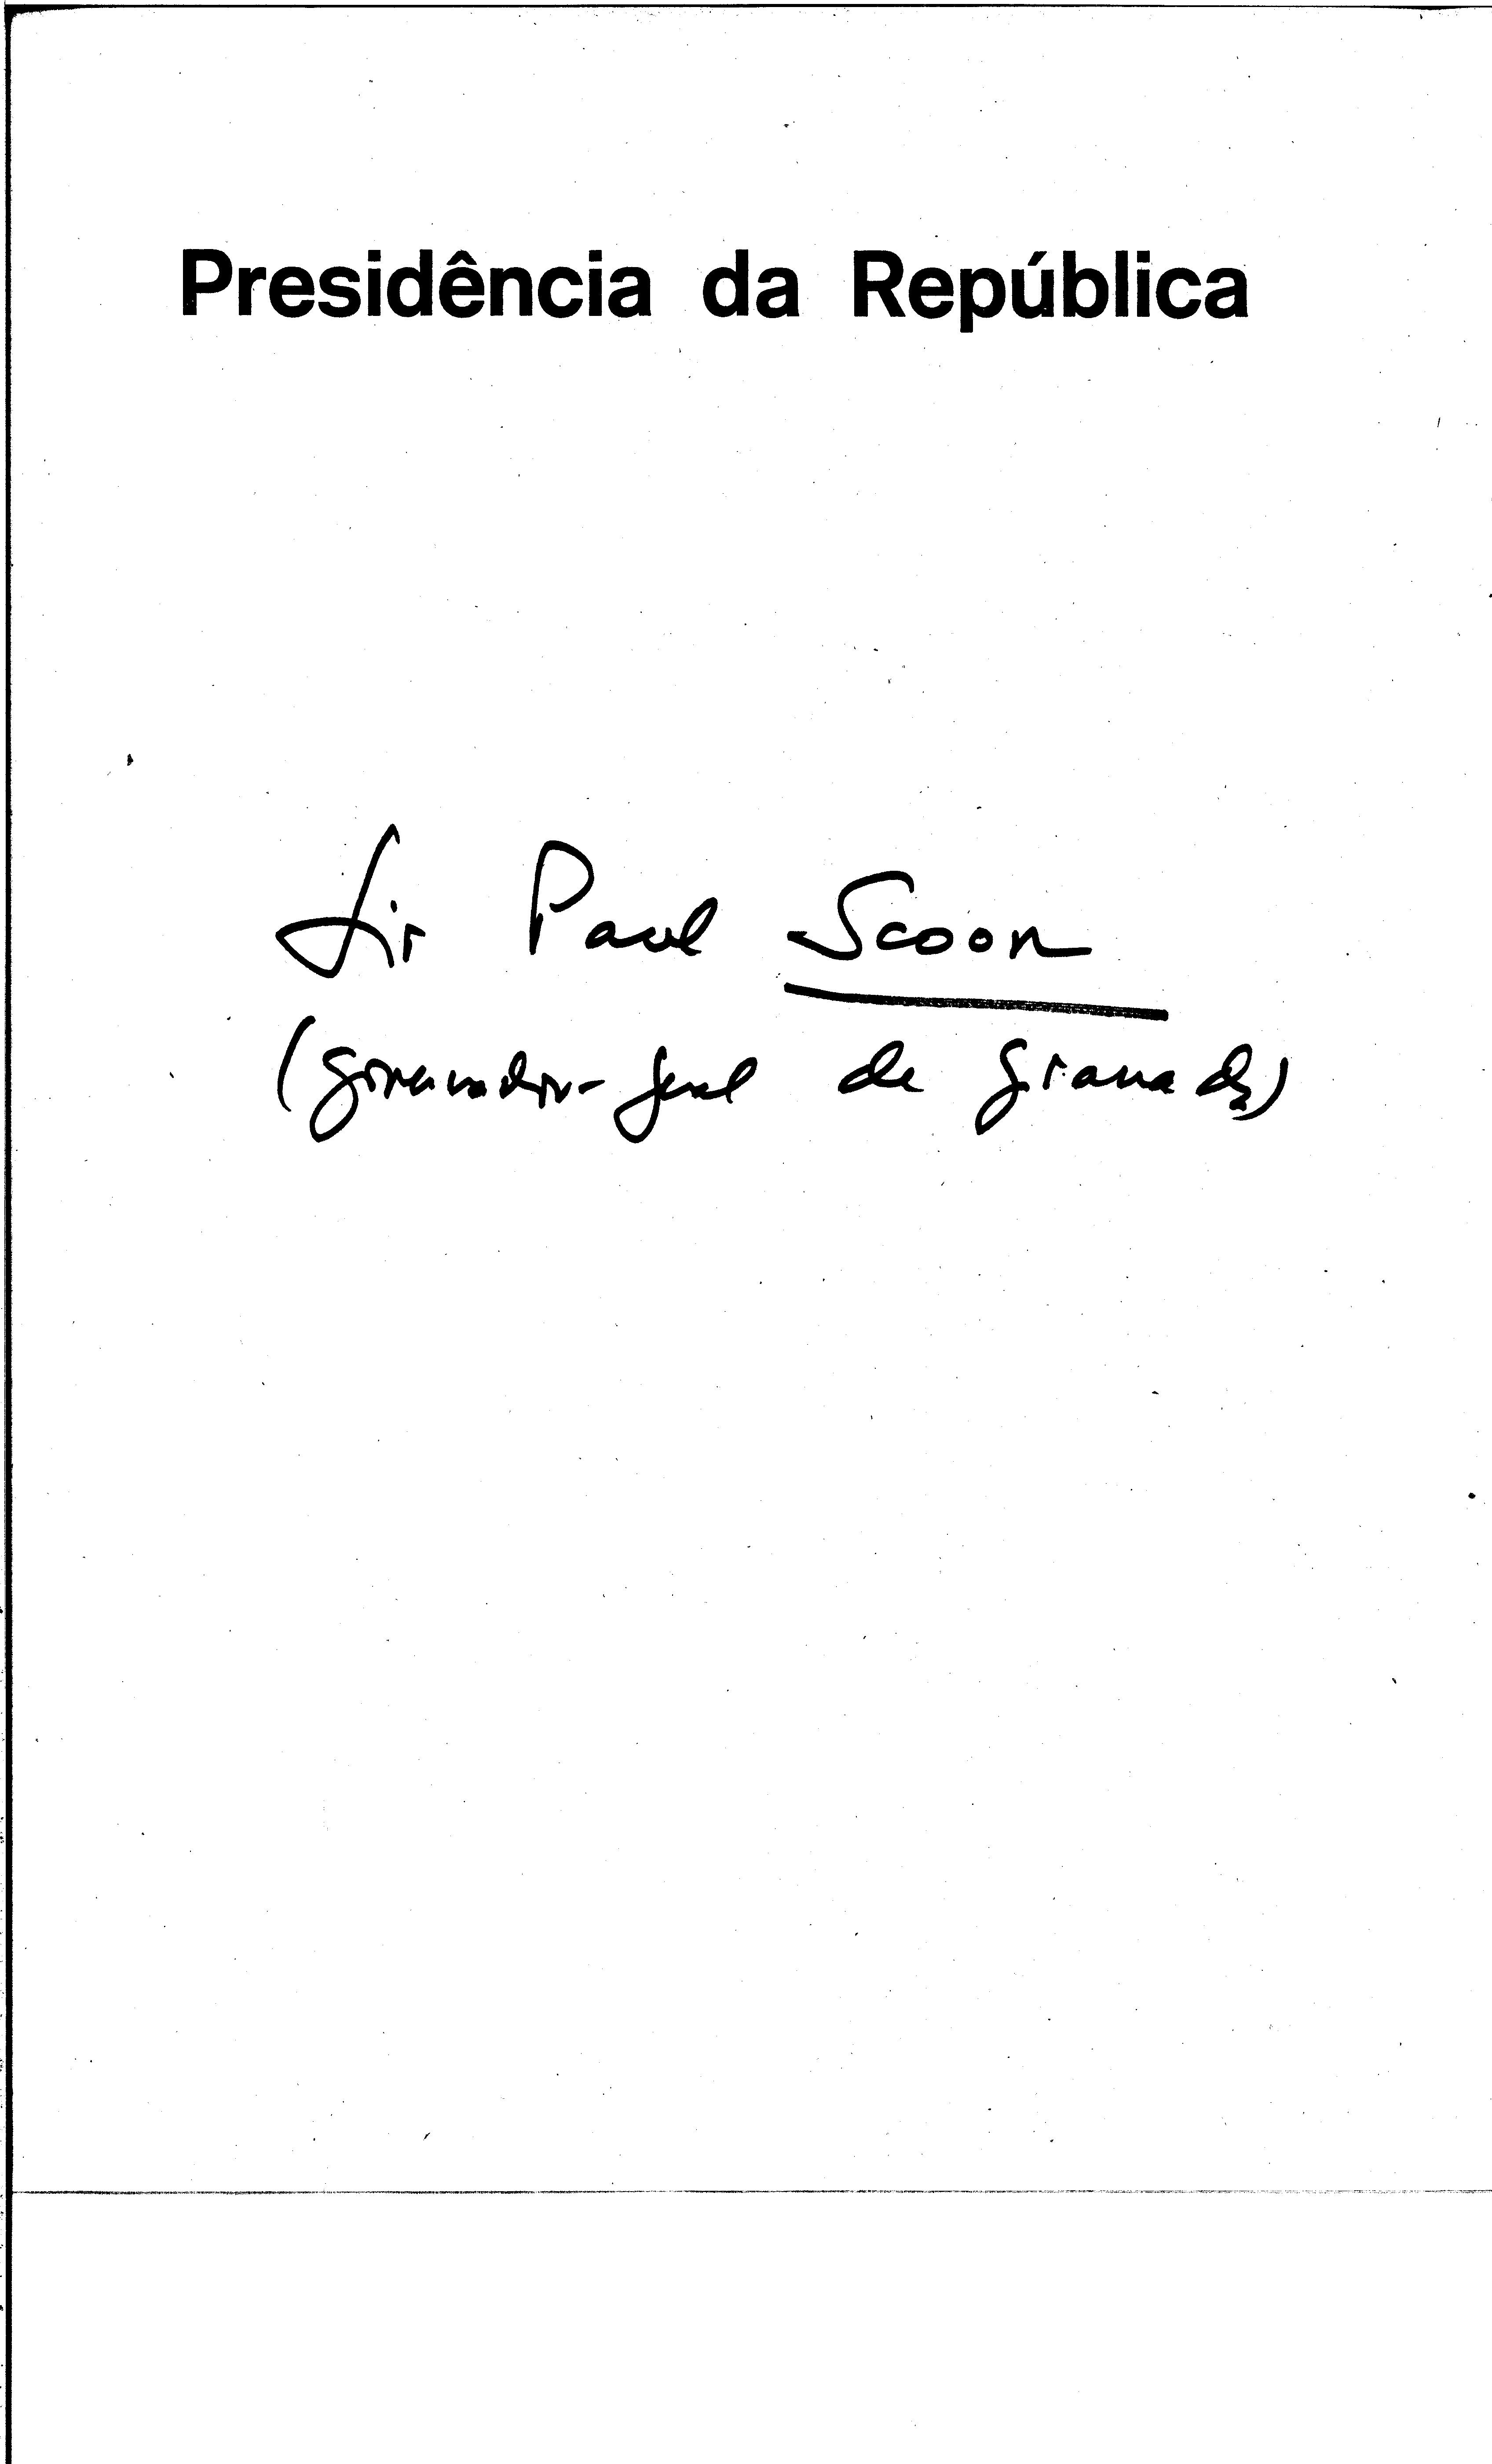 Presidência da República
Sir Paul Scoon
(governador-geral de Granada)